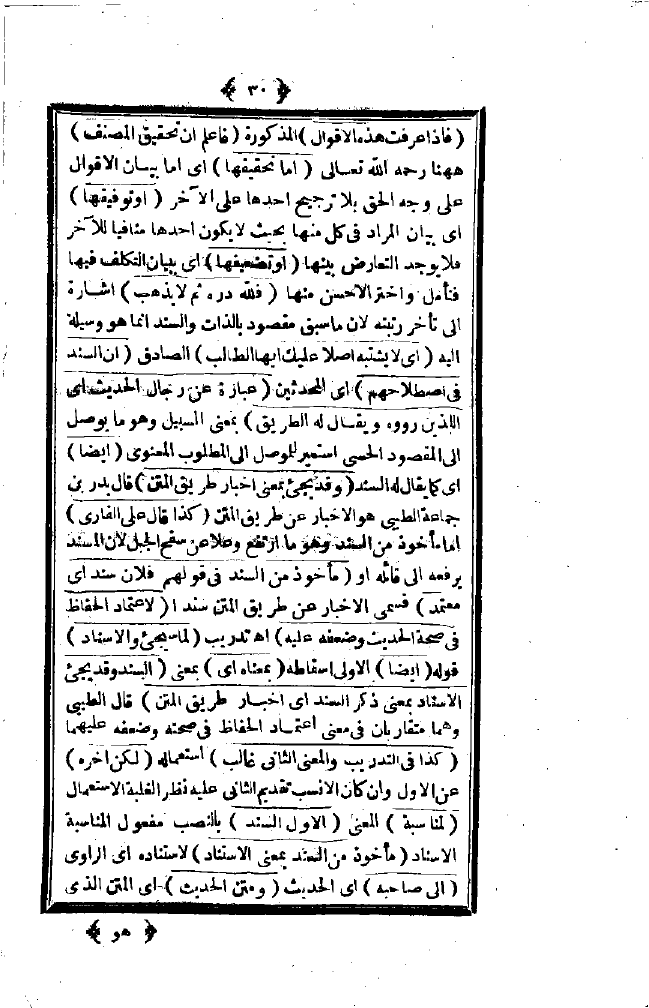 ﴿ ٣٠ ﴾
( فاذا عرفت هذه الاقوال ) المذكورة ( فاعلم ان تحقيق المصنف )
ههنا رحمه الله تعالى ( اما تحقيقها ) اى اما بيان الاقوال
على وجه الحق بلا ترجيح احدها على الآخر ( اوتوفيقها )
اى بيان المراد فى كل منها بحيث لا يكون احدها منافيا للآخر
فلا يوجد التعارض بينها ( اوتضعيفها ) اى ببيان التكلف فيها
فتأمل واختر الاحسن منها ( فلله دره ثم لا يذهب ) اشارة
الى تأخر رتبته لان ماسبق مقصود بالذات والسند انما هو وسيلة
اليه ( اى لا يشتبه اصلا عليك ايها الطالب ) الصادق ( ان السند
فى اصطلاحهم ) اى المحدثين ( عبارة عن رجال الحديث اى
اللذين رووه ويقال له الطريق ) بمعنى السبيل وهو ما يوصل
الى المقصود الحسى استعير للموصل الى المطلوب المعنوى ( ايضا )
اى كما يقال له السند ( وقد يجئ بمعنى اخبار طريق المتن ) قال بدر بن
جماعة الطيبى هو الاخبار عن طريق المتن ( كذا قال على القارى )
اما مأخوذ من السند وهو ما ارتفع وعلا عن سفح الجبل لان المسند
يرفعه الى قائله او ( مأخوذ من السند فى قولهم فلان سند اى
معتمد ) فسمى الاخبار عن طريق المتن سندا ( لاعتماد الحفاظ
فى صحة الحديث وضعفه عليه ) اه تدريب ( لما سيجئ والاسناد )
قوله ( ايضا ) الاولى اسقاطه ( بمعناه اى ) بمعنى ( السند وقد يجئ
الاسناد بمعنى ذكر السند اى اخبار طريق المتن ) قال الطيبى
وهما متقاربان فى معنى اعتماد الحفاظ فى صحته وضعفه عليهما
( كذا فى التدريب والمعنى الثانى غالب ) استعماله ( لكن اخره )
عن الاول وان كان الانسب تقديم الثانى عليه نظر الغلبة الاستعمال
( لمناسبة ) المعنى ( الاول السند ) بالنصب مفعول المناسبة
الاسناد ( مأخوذ من السند بمعنى الاستناد ) لاستناده اى الراوى
( الى صاحبه ) اى الحديث ( ومتن الحديث ) اى المتن الذى
﴿ هو ﴾